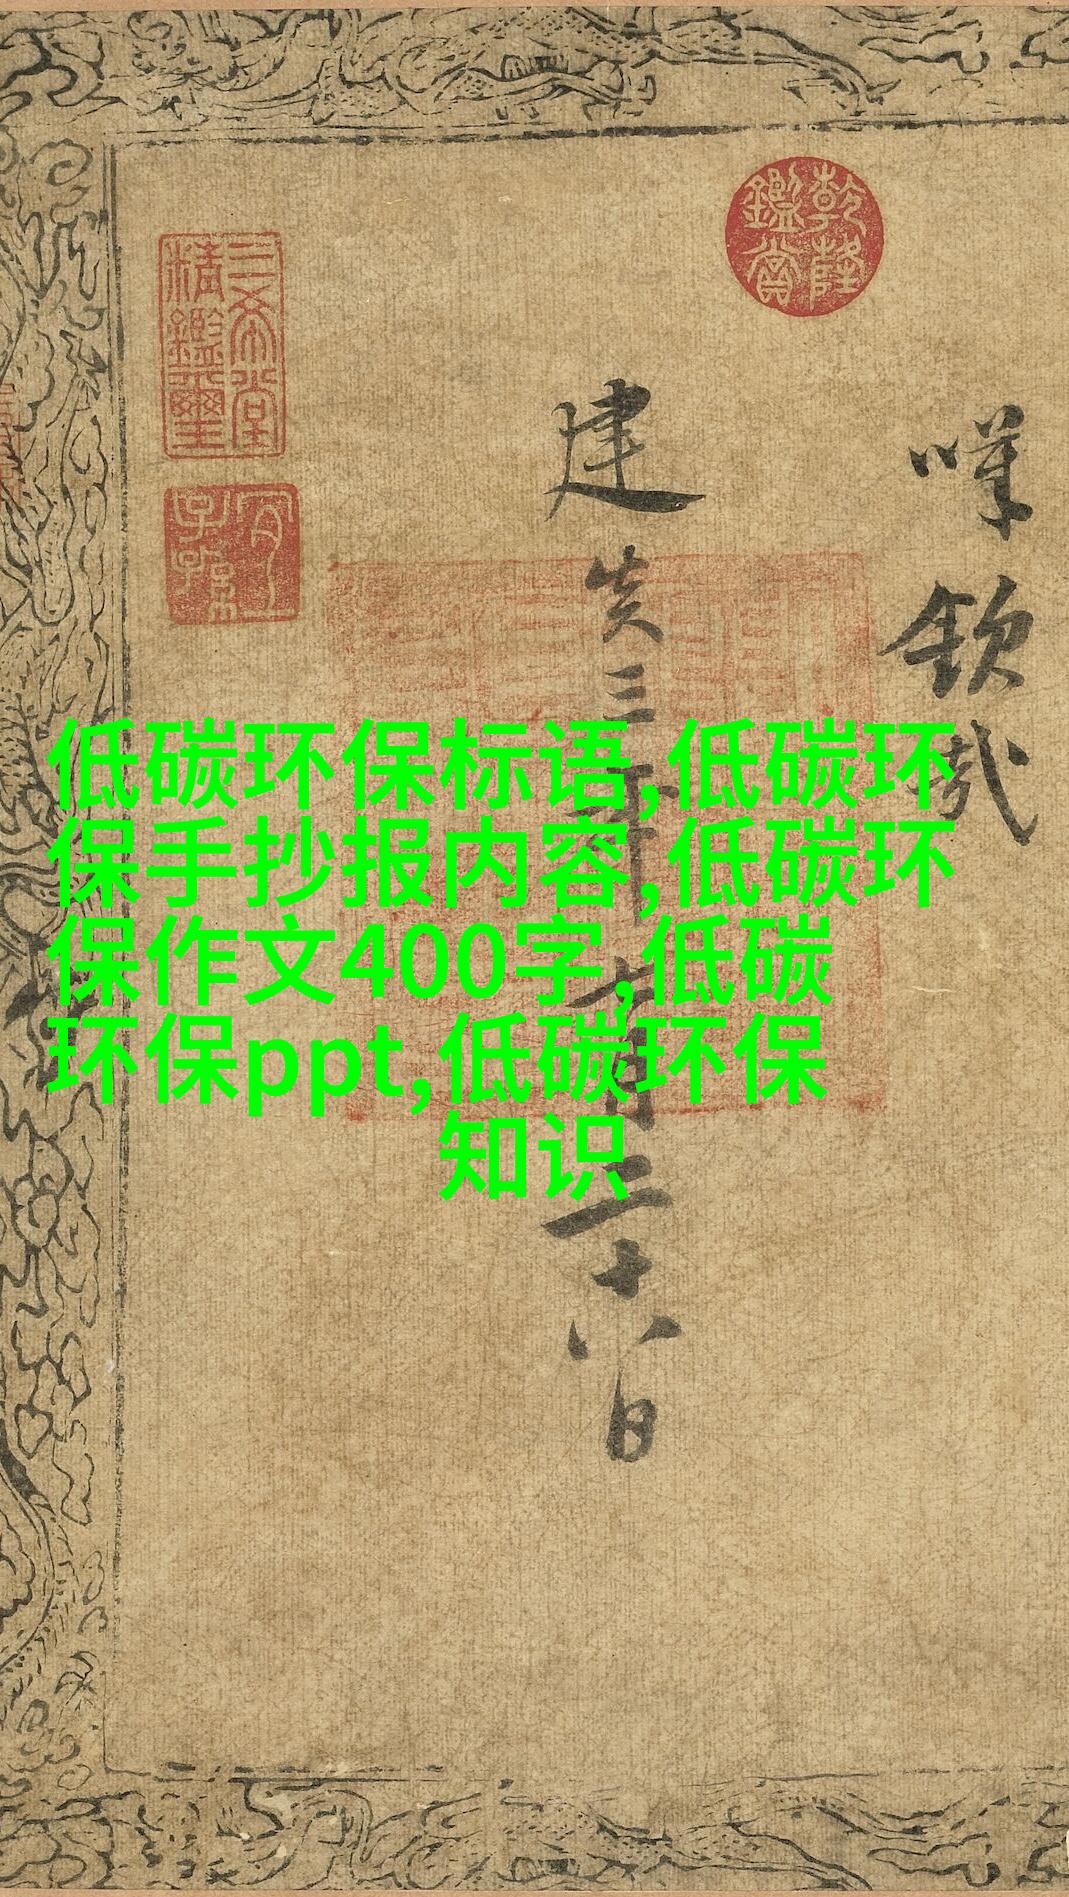 嘆欽哉
建炎三年六月二十八日
乾隆鑑賞
三希堂精鑑璽
宜子孫
低碳环保标语,低碳环
保手抄报内容,低碳环
保作文400字,低碳
环保ppt,低碳环保
知识